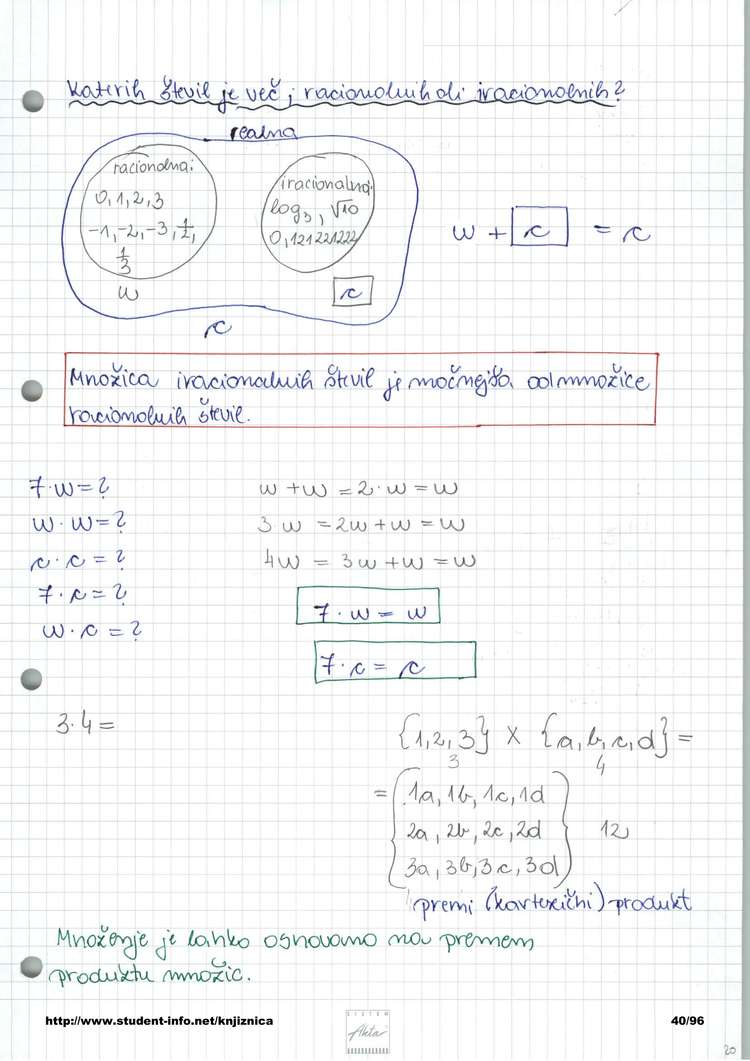 Katerih števil je več, racionalnih ali iracionalnih?
realna
racionalna:
0, 1, 2, 3
-1, -2, -3, 1/2,
1/3
w
iracionalna:
log₃, √10
0,121221222
c
c
w + c = c
Množica iracionalnih števil je močnejša od množice
racionalnih števil.
7·w = ?
w·w = ?
c·c = ?
7·c = ?
w·c = ?
w + w = 2·w = w
3w = 2w + w = w
4w = 3w + w = w
7·w = w
7·c = c
3·4 =
{1, 2, 3} × {a, b, c, d} =
3 4
= {1a, 1b, 1c, 1d
2a, 2b, 2c, 2d} 12
3a, 3b, 3c, 3d
premi (kartezični) produkt
Množenje je lahko osnovano na premem
produktu množic.
http://www.student-info.net/knjiznica
40/96
20